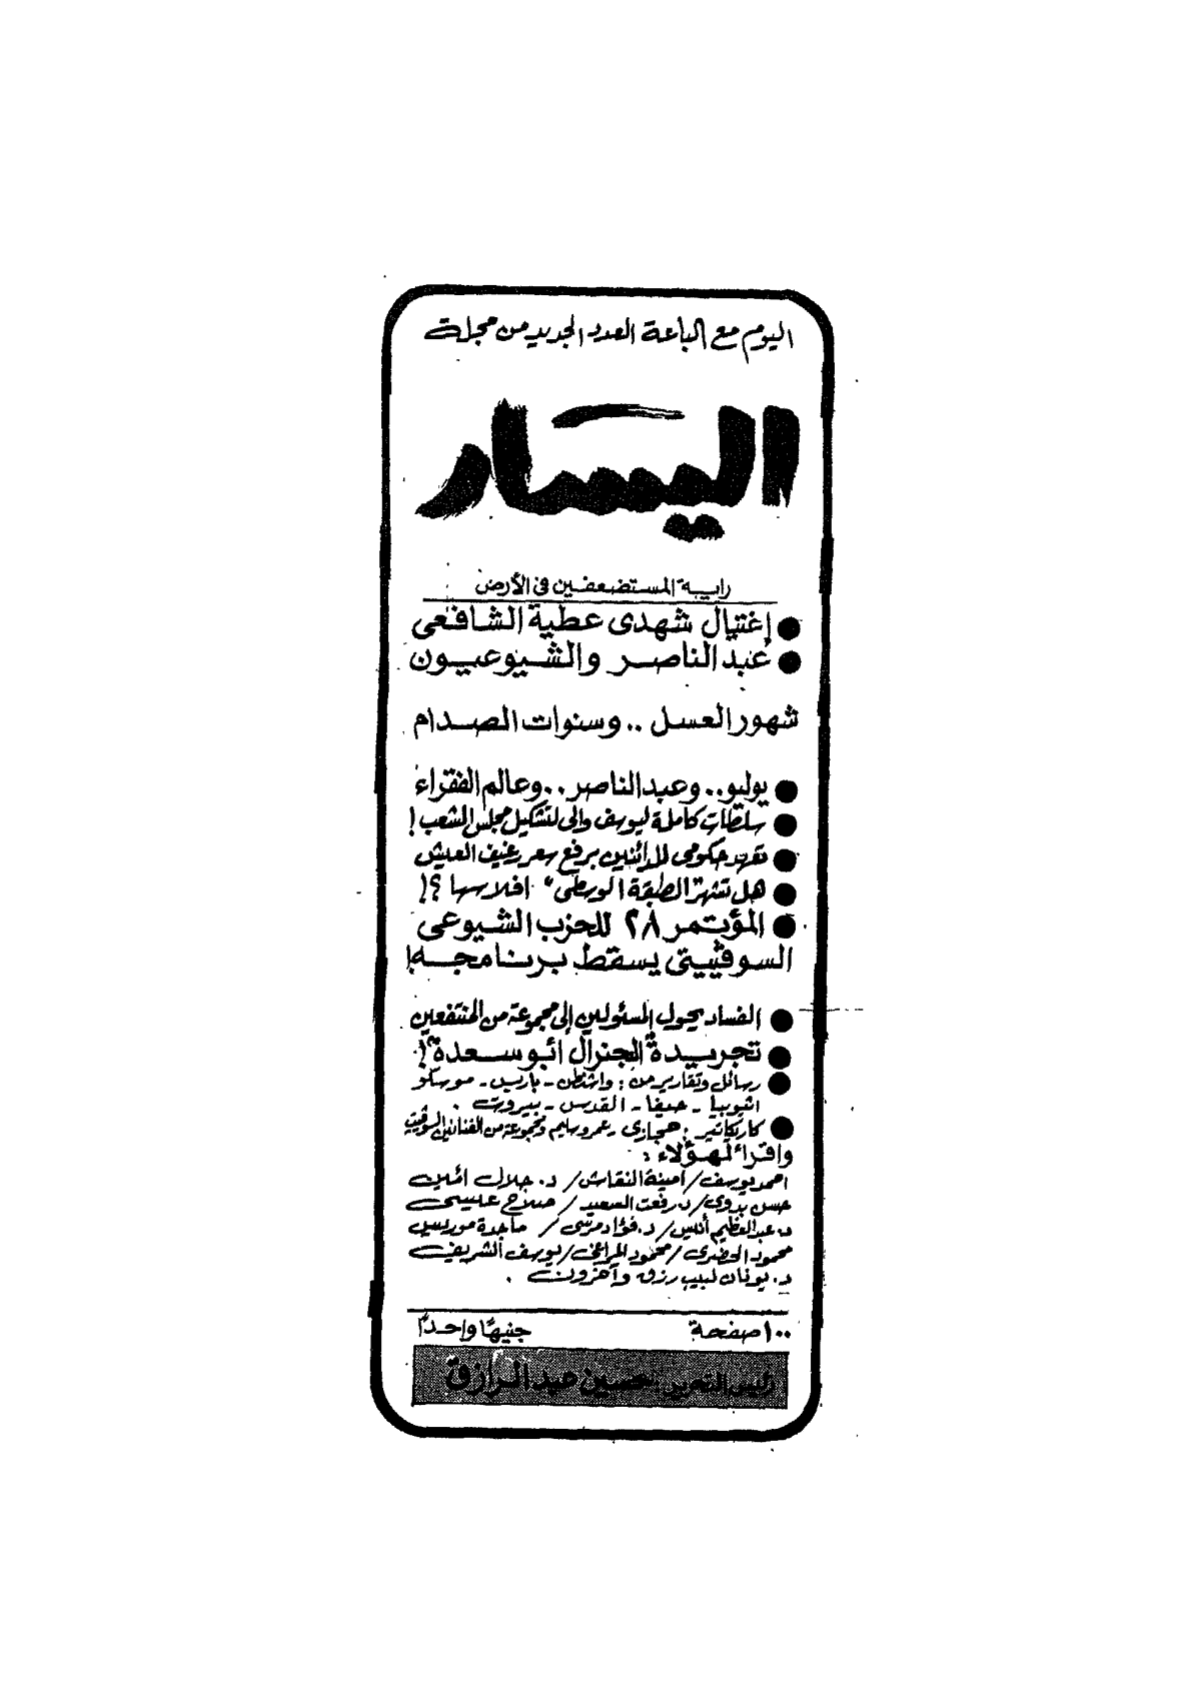 اليوم مع الباعة العدد الجديد من مجلة
اليسار
راية المستضعفين فى الأرض
● إغتيال شهدى عطية الشافعى
● عبد الناصر والشيوعيون
شهور العسل .. وسنوات الصدام
● يوليو .. وعبد الناصر .. وعالم الفقراء
● سلطات كاملة ليوسف والى لتشكيل مجلس الشعب !
● تعهد حكومى للدائنين برفع سعر رغيف العيش
● هل تشهر الطبقة الوسطى " افلاسها ؟!
● المؤتمر ٢٨ للحزب الشيوعى
السوڤييتى يسقط برنامجه !
● الفساد يحول المسئولين إلى مجموعة من المنتفعين
● تجريدة " الجنرال أبو سعدة " !
● رسائل وتقارير من : واشنطن - باريس - موسكو
اثيوبيا - حيفا - القدس - بيروت .
● كاريكاتير : حجازى - عمرو سليم ومجموعة من الفنانين السوڤييت
واقرأ لهؤلاء :
احمد يوسف / أمينة النقاش / د. جلال أمين
حسن بدوى / د. رفعت السعيد / صلاح عيسى
د. عبد العظيم أنيس / د. فؤاد مرسى / ماجدة موريس
محمود الحضرى / محمود المراغى / يوسف الشريف
د. يونان لبيب رزق وآخرون .
١٠٠ صفحة جنيهًا واحدًا
رئيس التحرير : حسين عبد الرازق